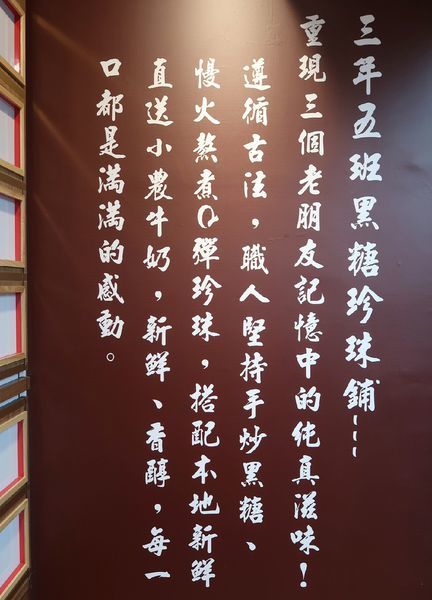 三年五班黑糖珍珠鋪---
重現三個老朋友記憶中的純真滋味！
遵循古法，職人堅持手炒黑糖、
慢火熬煮Q彈珍珠，搭配本地新鮮
直送小農牛奶，新鮮、香醇，每一
口都是滿滿的感動。